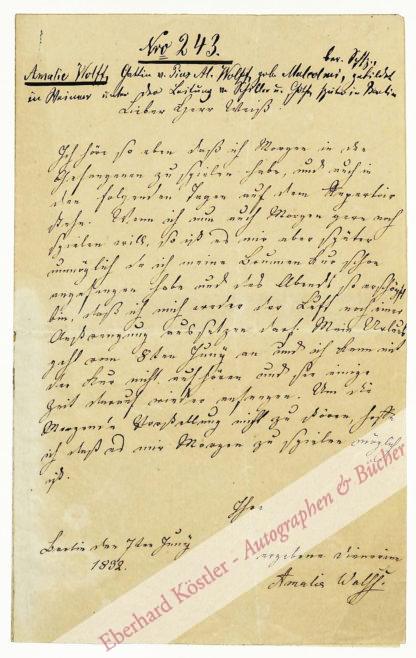 Nro 243.
Amalie Wolff, Gattin v. Pius Al. Wolff, geb. Malcolmi, gebildet
in Weimar unter der Leitung v. Schiller u. Göthe, später in Berlin
Lieber Herr Weiß
Ich höre so eben daß ich Morgen in den
Gefangenen zu spielen habe, und auch in
den folgenden Tagen auf dem Repertoir
stehe. Wenn ich nun auch Morgen gern noch
spielen will, so ist es mir aber später
unmöglich da ich meine Brunnen Kur schon
angefangen habe und des Abends so erschöpft
bin, daß ich mich weder der Luft noch einer
Anstrengung aussetzen darf. Mein Urlaub
geht vom 8ten Juny an und ich kann mit
der Kur nicht aufhören und sie einige
Zeit darauf wieder anfangen. Um die
Morgende Vorstellung nicht zu stören, hoffe
ich daß es mir Morgen zu spielen möglich
ist.
Ihre
Berlin den 7ten Juny
1832.
ergebene Dienerin
Amalie Wolff.
Eberhard Köstler - Autographen & Bücher